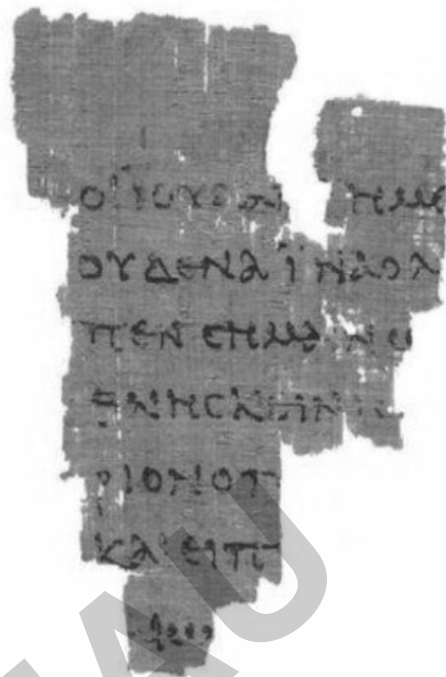 ΟΙ ΪΟΥΔΑΙ ΗΜΕ
ΟΥΔΕΝΑ ΪΝΑ Ο Λ
ΠΕΝ ϹΗΜΑΙΝΩ
ΘΝΗϹΚΕΙΝ ΙϹ
ΡΙΟΝ Ο Π
ΚΑΙ ΕΙΠ
ΑΙΩ